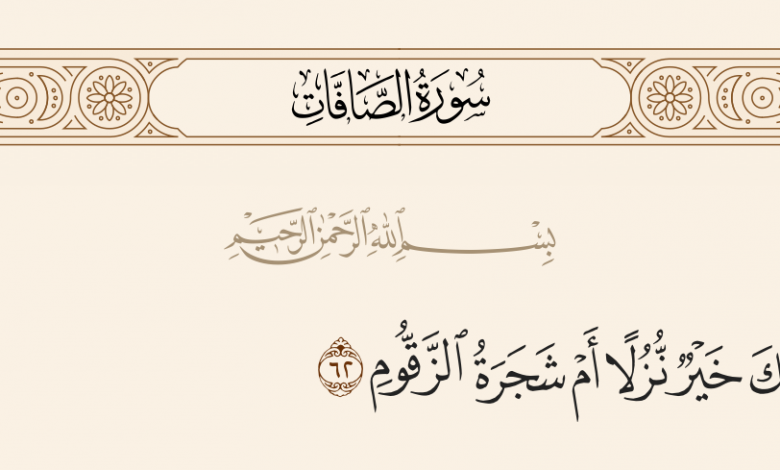 سُورَةُ الصَّافَّاتِ
بِسْمِ ٱللَّهِ ٱلرَّحْمَٰنِ ٱلرَّحِيمِ
كَ خَيْرٌۭ نُّزُلًا أَمْ شَجَرَةُ ٱلزَّقُّومِ ٦٢